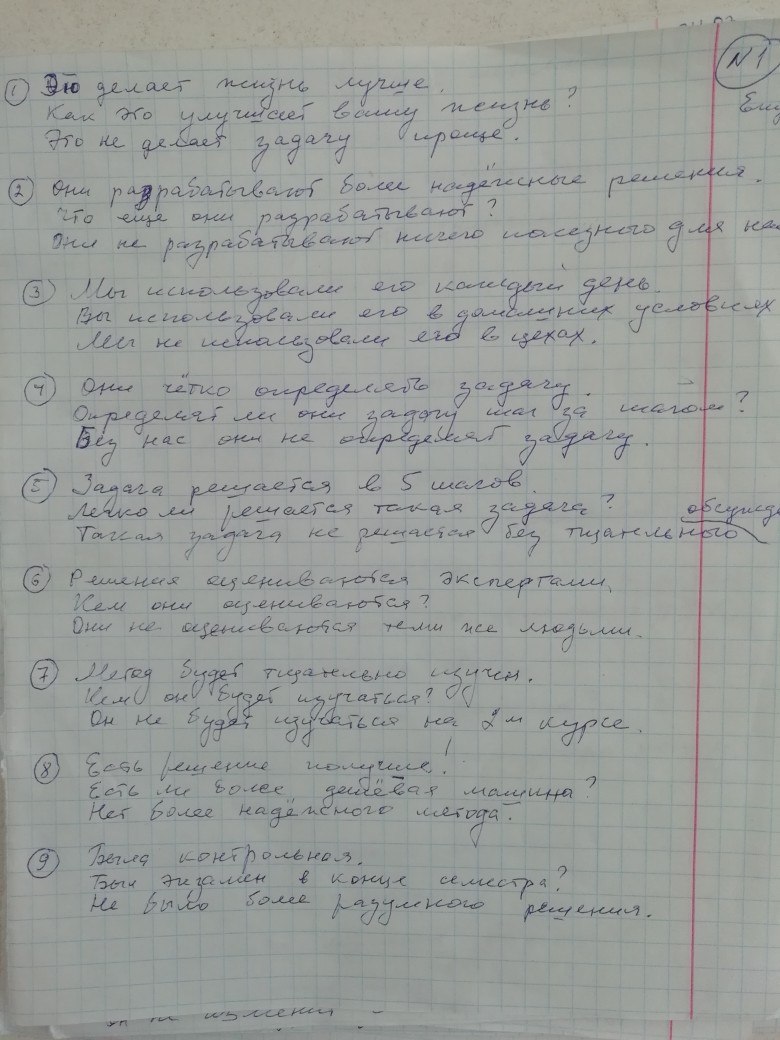 N1
① Это делает жизнь лучше.
Как это улучшает вашу жизнь?
Это не делает задачу проще.
② Они разрабатывают более надёжные решения.
Что еще они разрабатывают?
Они не разрабатывают ничего полезного для
③ Мы использовали его каждый день.
Вы использовали его в домашних условиях
Мы не использовали его в цехах.
④ Они чётко определять задачу.
Определят ли они задачу шаг за шагом?
Без нас они не определят задачу.
⑤ Задача решается в 5 шагов.
Легко ли решается такая задача?
Такая задача не решается без тщательного обсужде
⑥ Решения оцениваются экспертами.
Кем они оцениваются?
Они не оцениваются теми же людьми.
⑦ Метод будет тщательно изучен.
Кем он будет изучаться?
Он не будет изучаться на 2м курсе.
⑧ Есть решение получше!
Есть ли более дешёвая машина?
Нет более надёжного метода.
⑨ Была контрольная.
Был экзамен в конце семестра?
Не было более разумного решения.